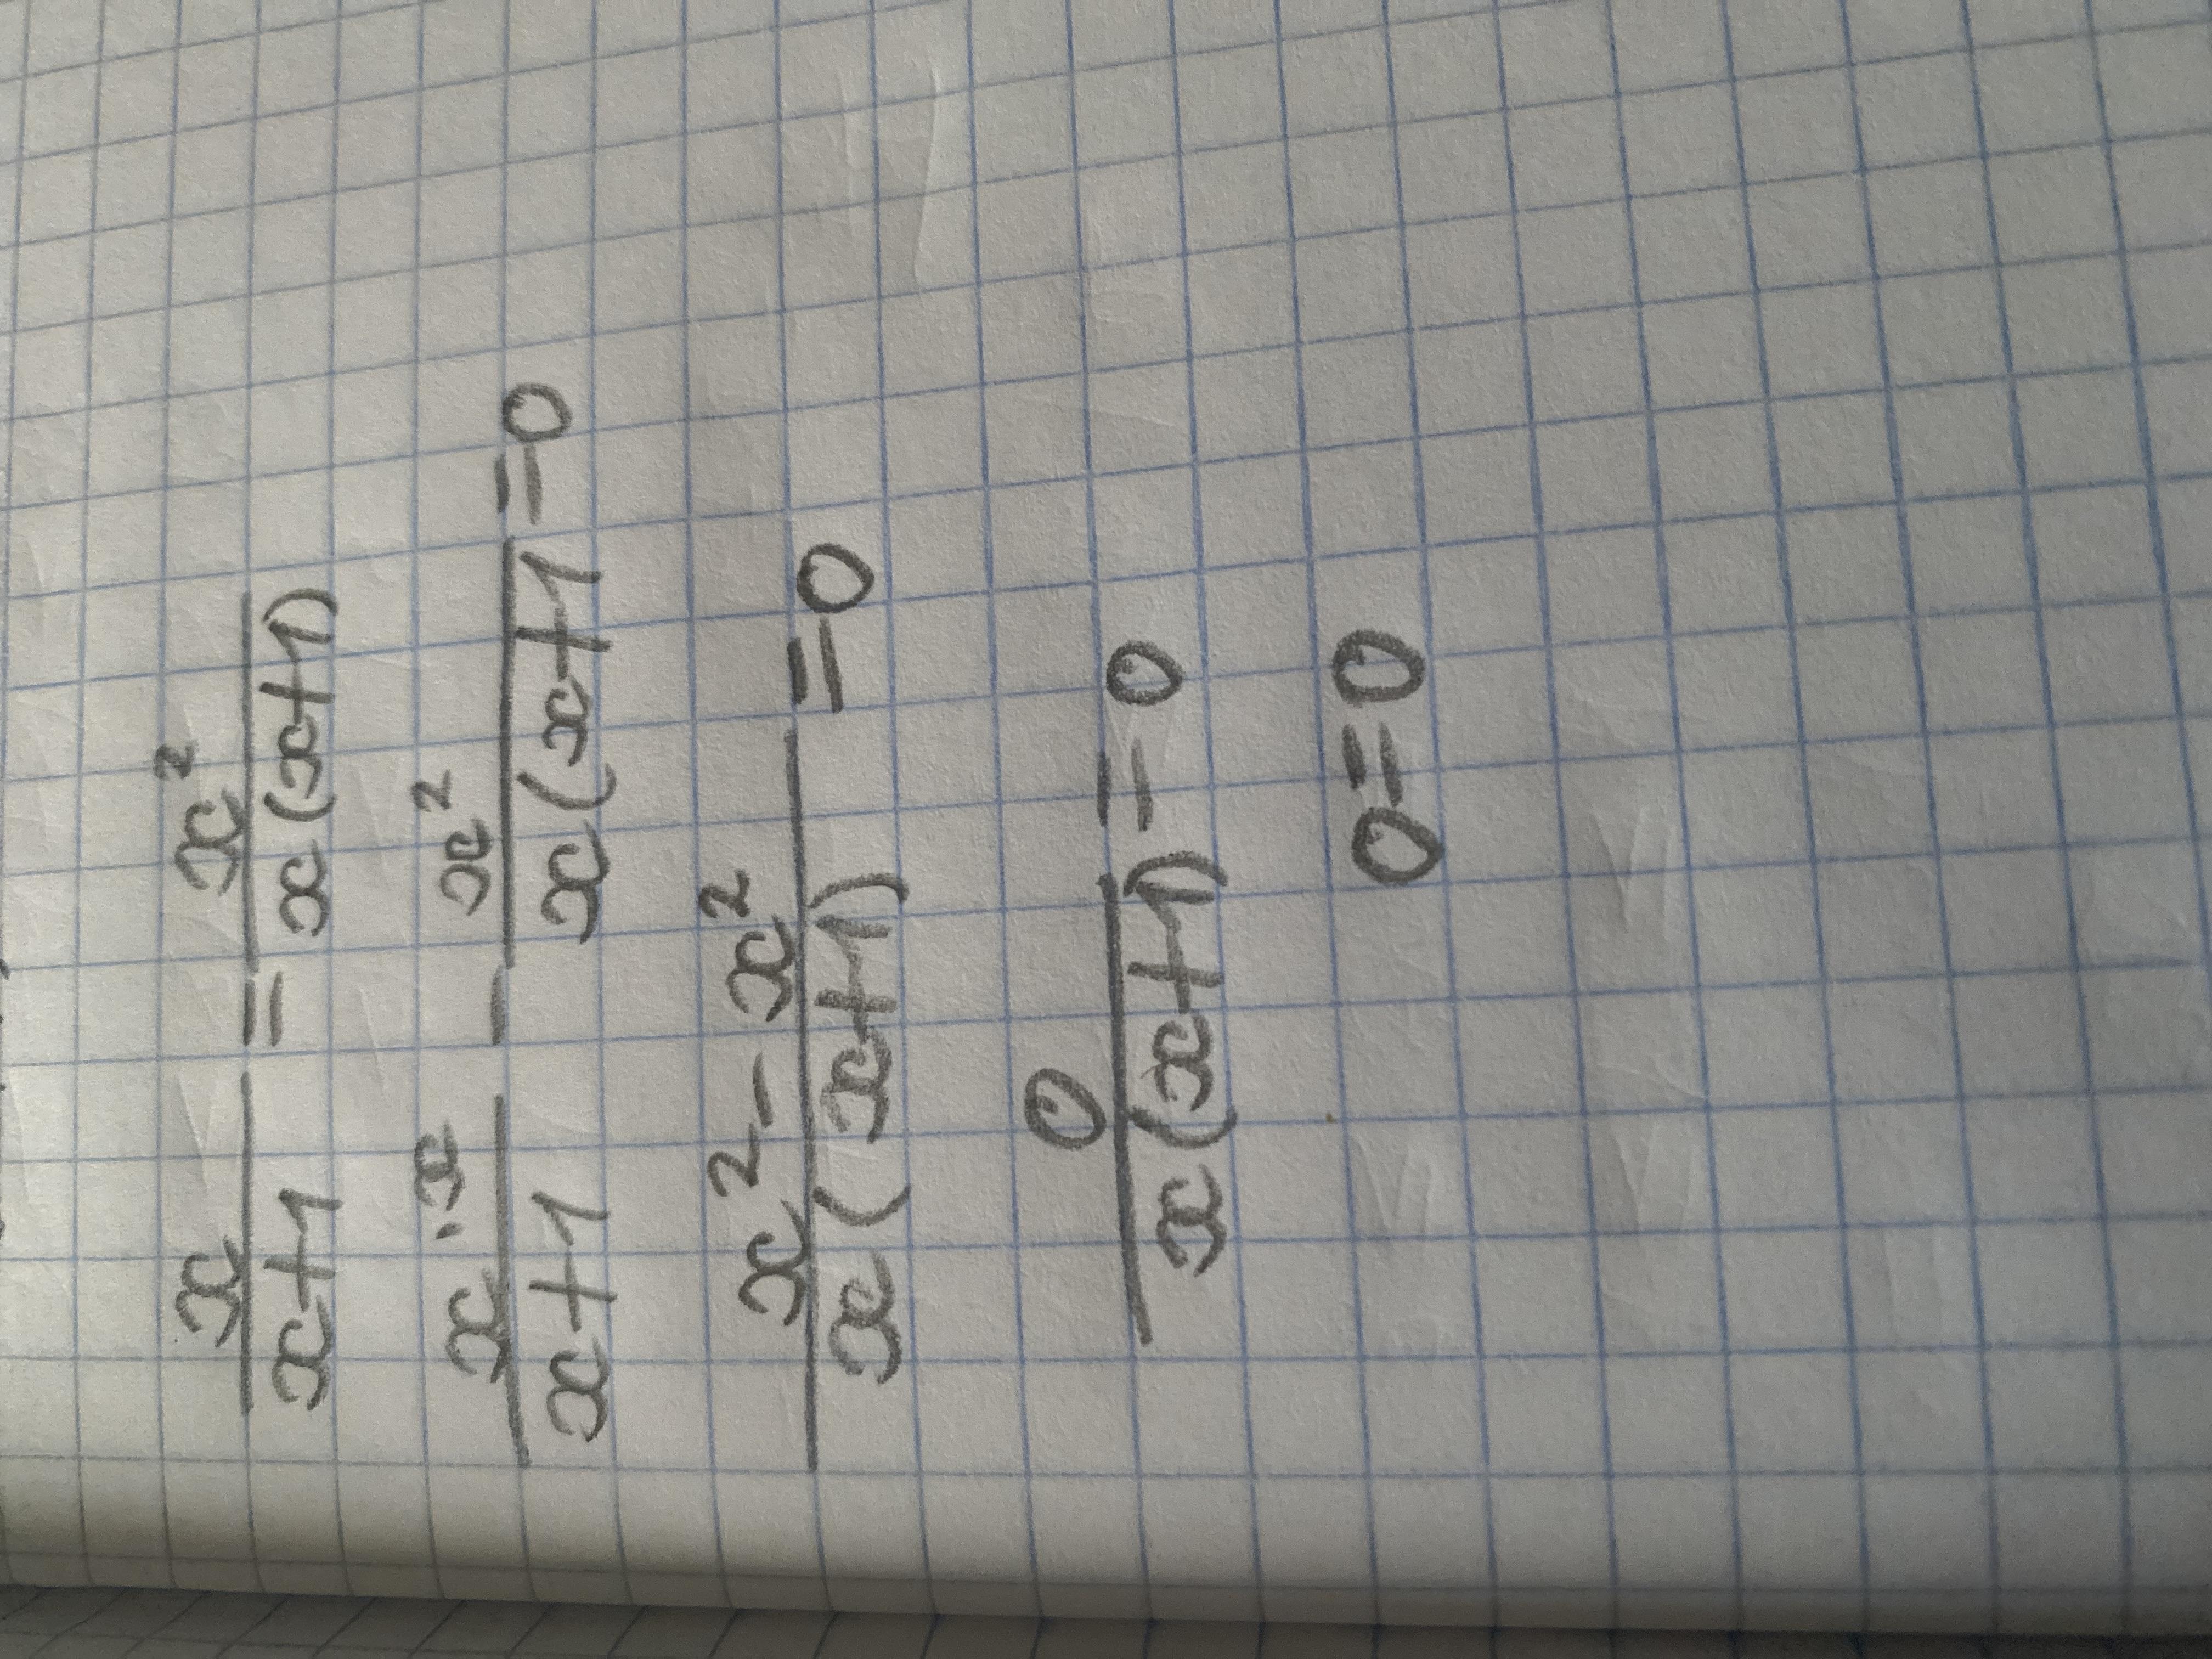 x/(x+1) = x²/(x(x+1))
x·x/(x+1) - x²/(x(x+1) = 0
(x² - x²)/(x(x+1)) = 0
0/(x(x+1)) = 0
0=0